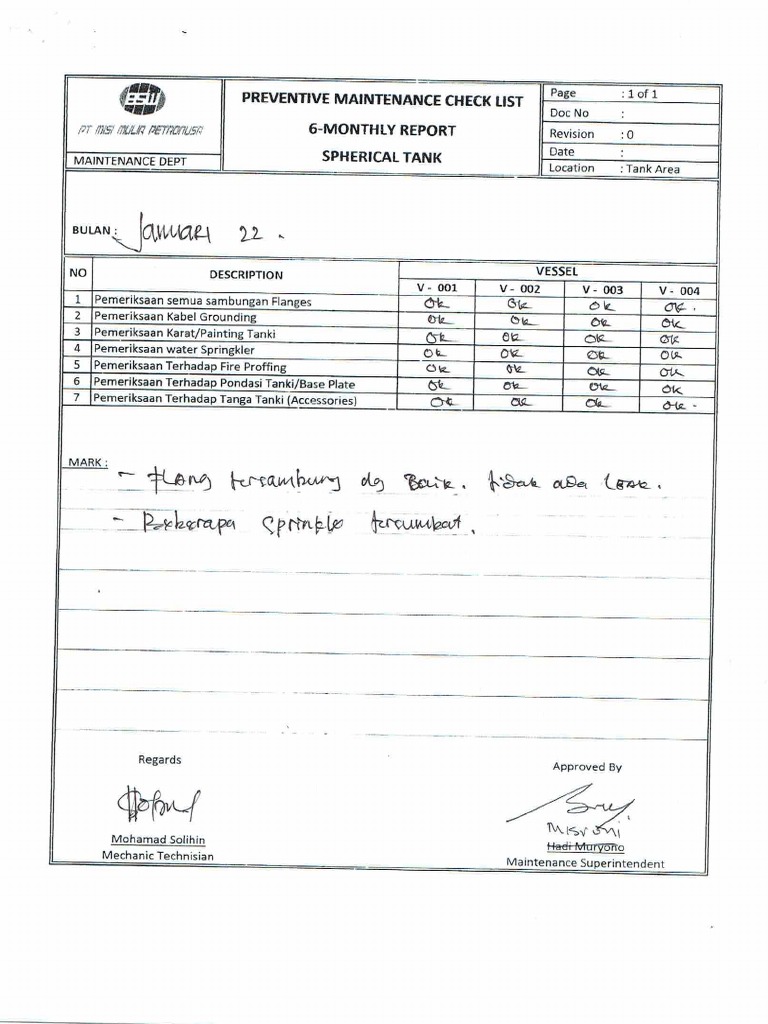 ESW
PT MISI MULIA PETRONUSA
MAINTENANCE DEPT
PREVENTIVE MAINTENANCE CHECK LIST
6-MONTHLY REPORT
SPHERICAL TANK
Page : 1 of 1
Doc No :
Revision : 0
Date :
Location : Tank Area
BULAN : Januari 22 .
NO DESCRIPTION VESSEL
V - 001 V - 002 V - 003 V - 004
1 Pemeriksaan semua sambungan Flanges Ok Ok Ok Ok .
2 Pemeriksaan Kabel Grounding Ok Ok Ok Ok
3 Pemeriksaan Karat/Painting Tanki Ok Ok Ok Ok
4 Pemeriksaan water Springkler Ok Ok Ok Ok
5 Pemeriksaan Terhadap Fire Proffing Ok Ok Ok Ok
6 Pemeriksaan Terhadap Pondasi Tanki/Base Plate Ok Ok Ok Ok
7 Pemeriksaan Terhadap Tanga Tanki (Accessories) Ok Ok Ok Ok -
MARK :
- Flang tersambung dg Baik. tidak ada Leak.
- Beberapa Sprinkle tersumbat.
Regards
Approved By
Misroni
Mohamad Solihin
Hadi Muryono
Mechanic Technisian
Maintenance Superintendent